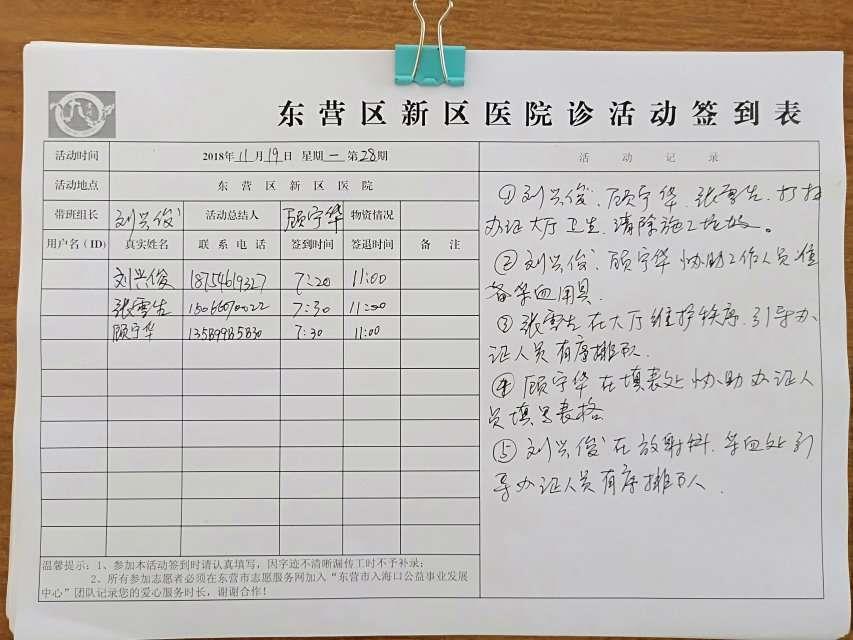 东营区新区医院诊活动签到表
活动时间 2018年11月19日 星期一 第28期
活动地点 东营区新区医院
带班组长 刘兴俊 活动总结人 顾宁华 物资情况
用户名(ID) 真实姓名 联系电话 签到时间 签退时间 备注
刘兴俊 18754619327 7:20 11:00
张雪生 15066070022 7:30 11:00
顾宁华 13589985830 7:30 11:00
温馨提示:1、参加本活动签到时请认真填写,因字迹不清晰漏传工时不予补录;
2、所有参加志愿者必须在东营市志愿服务网加入“东营市入海口公益事业发展
中心”团队记录您的爱心服务时长,谢谢合作!
活动记录
①刘兴俊、顾宁华、张雪生、打扫
办证大厅卫生,清除施工垃圾。
②刘兴俊、顾宁华协助工作人员准
备采血用具.
③张雪生在大厅维护秩序.引导办
证人员有序排队.
④顾宁华在填表处协助办证人
员填写表格
⑤刘兴俊在放射科.采血处引
导办证人员有序排队人.